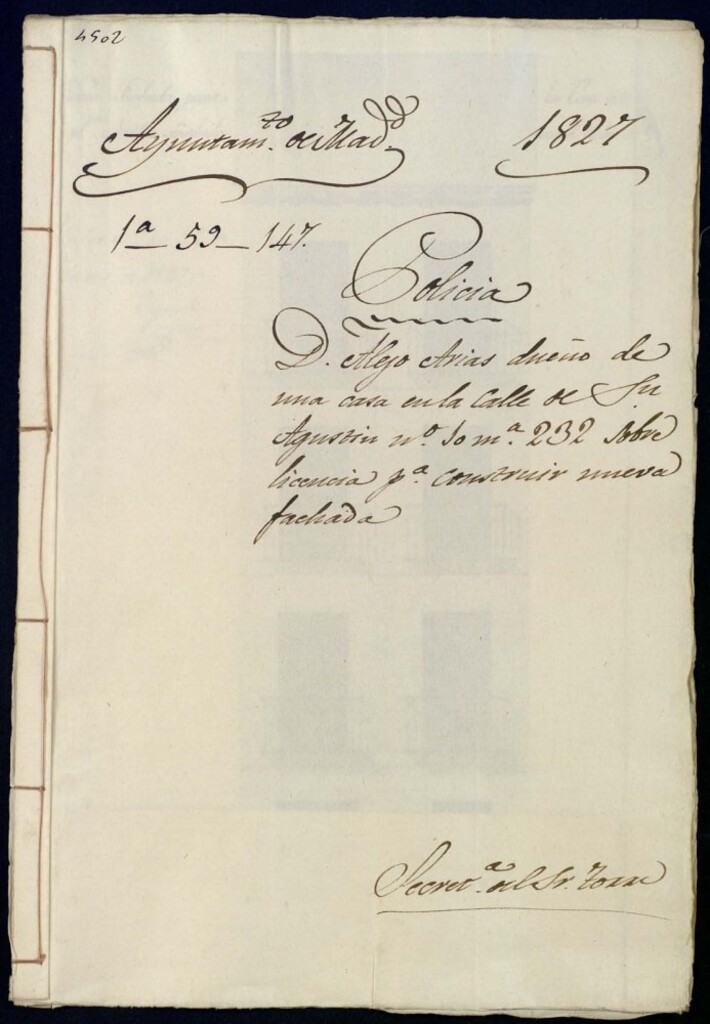 4502
Ayuntam.to de Mad.d 1827
1a_ 59_ 147.
Policia
D. Alejo Arias dueño de
una casa en la Calle de Sn
Agustin nº. 10 m.a 232 sobre
licencia p.a construir nueva
fachada
Secret.a del Sr. Torre